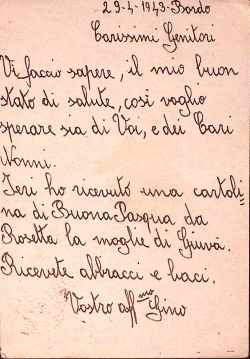 29-4-1943-Bordo
Carissimi Genitori
Vi faccio sapere, il mio buon
stato di salute, così voglio
sperare sia di Voi, e dei Cari
Nonni.
Ieri ho ricevuto una cartoli=
na di Buona Pasqua da
Rosetta la moglie di Giuvà.
Ricevete abbracci e baci.
Vostro aff mo Gino